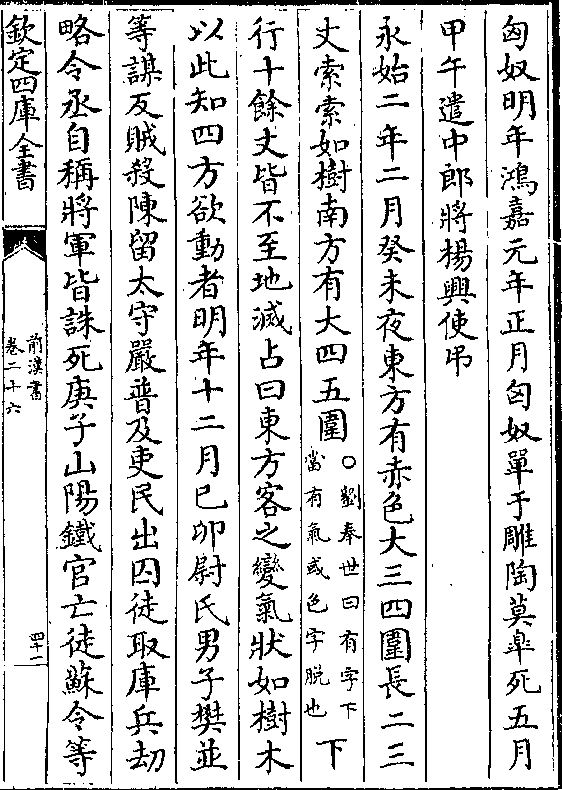 匈奴明年鴻嘉元年正月匈奴單于雕陶莫臯死五月
甲午遣中郎將楊興使弔
永始二年二月癸未夜東方有赤色大三四圍長二三
丈索索如樹南方有大四五圍○劉奉世曰有字下當有氣或色字脫也下
行十餘丈皆不至地滅占曰東方客之變氣狀如樹木
以此知四方欲動者明年十二月已卯尉氏男子樊並
等謀反賊殺陳留太守嚴普及吏民出囚徒取庫兵劫
略令丞自稱將軍皆誅死庚子山陽鐵官亡徒蘇令等
欽定四庫全書
前漢書
卷二十六
四十一